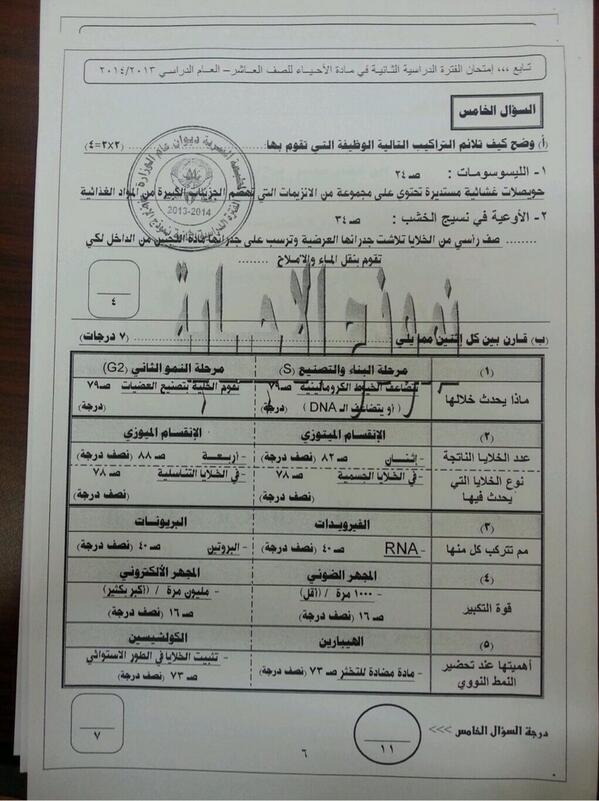 تابع ،،، إمتحان الفترة الدراسية الثانية في مادة الأحياء للصف العاشر – العام الدراسي ٢٠١٤/٢٠١٣
السؤال الخامس
(أ) وضح كيف تلائم التراكيب التالية الوظيفة التي تقوم بها: (٢×٢=٤)
١- الليسوسومات : صـ ٢٤
حويصلات غشائية مستديرة تحتوي على مجموعة من الانزيمات التي تهضم الجزيئات الكبيرة من المواد الغذائية
2013-2014
٢- الأوعية في نسيج الخشب : صـ ٣٤
........ صف رأسي من الخلايا تلاشت جدرانها العرضية وترسب على جدرانها مادة اللجنين من الداخل لكي
تقوم بنقل الماء والاملاح
٤
نموذج الإجابة
(ب) قارن بين كل اثنين مما يلي (٧ درجات)
(١) مرحلة البناء والتصنيع (S) مرحلة النمو الثاني (G2)
ماذا يحدث خلالها تتضاعف الخيوط الكروماتينية صـ ٧٩ تقوم الخلية بتصنيع العضيات صـ ٧٩
(أو يتضاعف الـ DNA ) (درجة) (درجة)
(٢) الإنقسام الميتوزي الإنقسام الميوزي
عدد الخلايا الناتجة - إثنان صـ ٨٢ (نصف درجة) - اربعة صـ ٨٨ (نصف درجة)
نوع الخلايا التي يحدث فيها - في الخلايا الجسمية صـ ٧٨ - في الخلايا التناسلية صـ ٧٨
(نصف درجة) (نصف درجة)
(٣) الفيرويدات البريونات
مم تتركب كل منها - RNA صـ ٤٠ (نصف درجة) - البروتين صـ ٤٠ (نصف درجة)
(٤) المجهر الضوئي المجهر الألكتروني
قوة التكبير - ١٠٠٠ مرة / (أقل) - مليون مرة / (أكبر بكثير)
صـ ١٦ (نصف درجة) صـ ١٦ (نصف درجة)
(٥) الهيبارين الكولشيسين
أهميتها عند تحضير النمط النووي - مادة مضادة للتخثر صـ ٧٣ (نصف درجة) - تثبيت الخلايا في الطور الاستوائي
صـ ٧٣ (نصف درجة)
درجة السؤال الخامس >>> ١١ ٧
٦